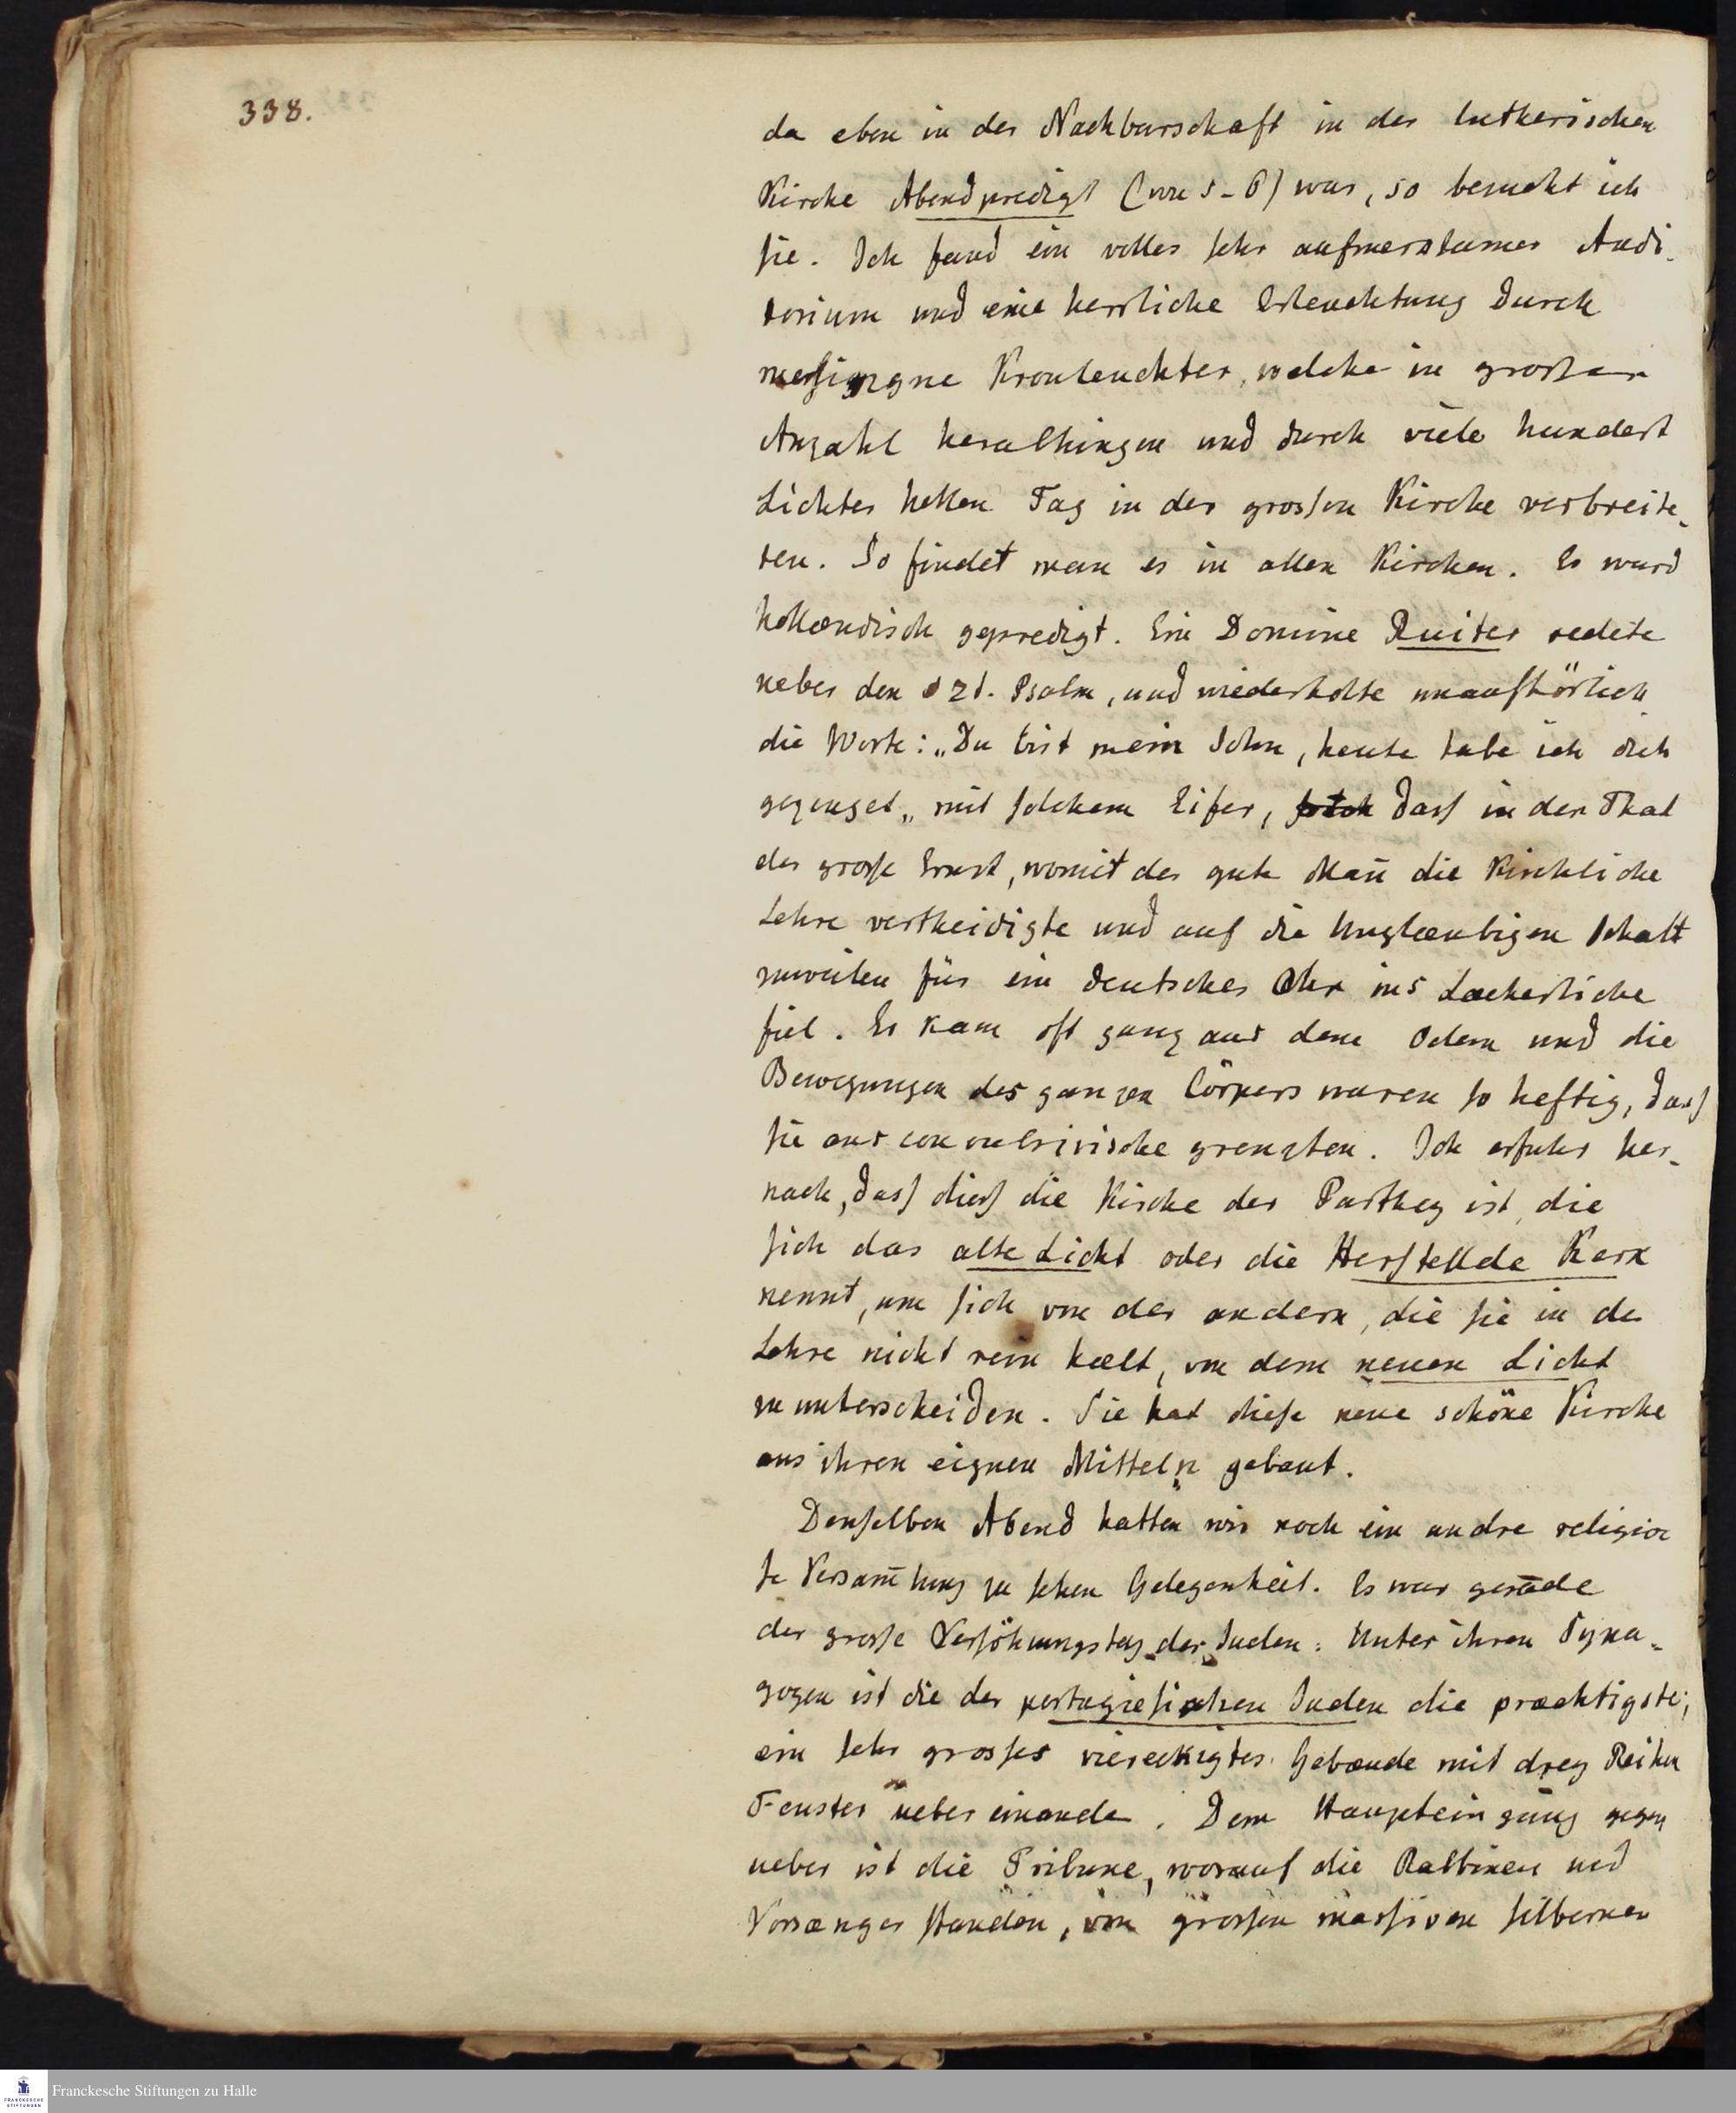 338.
da eben in der Nachbarschaft in der lutherischen
Kirche Abendpredigt (von 5-6) war, so besucht ich
sie. Ich fand ein volles sehr aufmerksames Audi-
torium und eine herrliche Erleuchtung durch
messingne Kronleuchter, welche in grosser
Anzahl herabhingen und durch viele hundert
Lichter hellen Tag in der grossen Kirche verbreite-
ten. So findet man es in allen Kirchen. Es ward
hollændisch gepredigt. Ein Domine Ruiter redete
ueber den 2t. Psalm, und wiederholte unaufhörlich
die Worte: „Du bist mein Sohn, heute habe ich dich
gezeuget„ mit solchem Eifer, dass in der That
der grosse Ernst, womit der gute Man̄ die kirchliche
Lehre vertheidigte und auf die Unglæubigen schalt
zuweilen für ein deutsches Ohr ins Læcherliche
fiel. Er kam oft ganz aus dem Odem und die
Bewegungen des ganzen Cörpers waren so heftig, dass
sie ans convulsivische grenzten. Ich erfuhr her-
nach, dass diess die Kirche der Parthey ist, die
sich das alte Licht oder die Herstellde Kerk
nennt, um sich von der andern, die sie in der
Lehre nicht rein hælt, von dem neuen Licht
zu unterscheiden. Sie hat diese neue schöne Kirche
aus ihren eignen Mitteln gebaut.
Denselben Abend hatten wir noch ein andre religiö
se Versam̄lung zu sehen Gelegenheit. Es war gerade
der grosse Versöhnungstag der Juden. Unter ihren Syna-
gogen ist die der portugiesischen Juden die præchtigste;
ein sehr grosses viereckigtes Gebæude mit drey Reihen
Fenster ueber einander. Dem Haupteingang gegen
ueber ist die Tribune, worauf die Rabbinen und
Vorsænger standen, von grossen massiven silbernen
Franckesche Stiftungen zu Halle
FRANCKESCHE
STIFTUNGEN